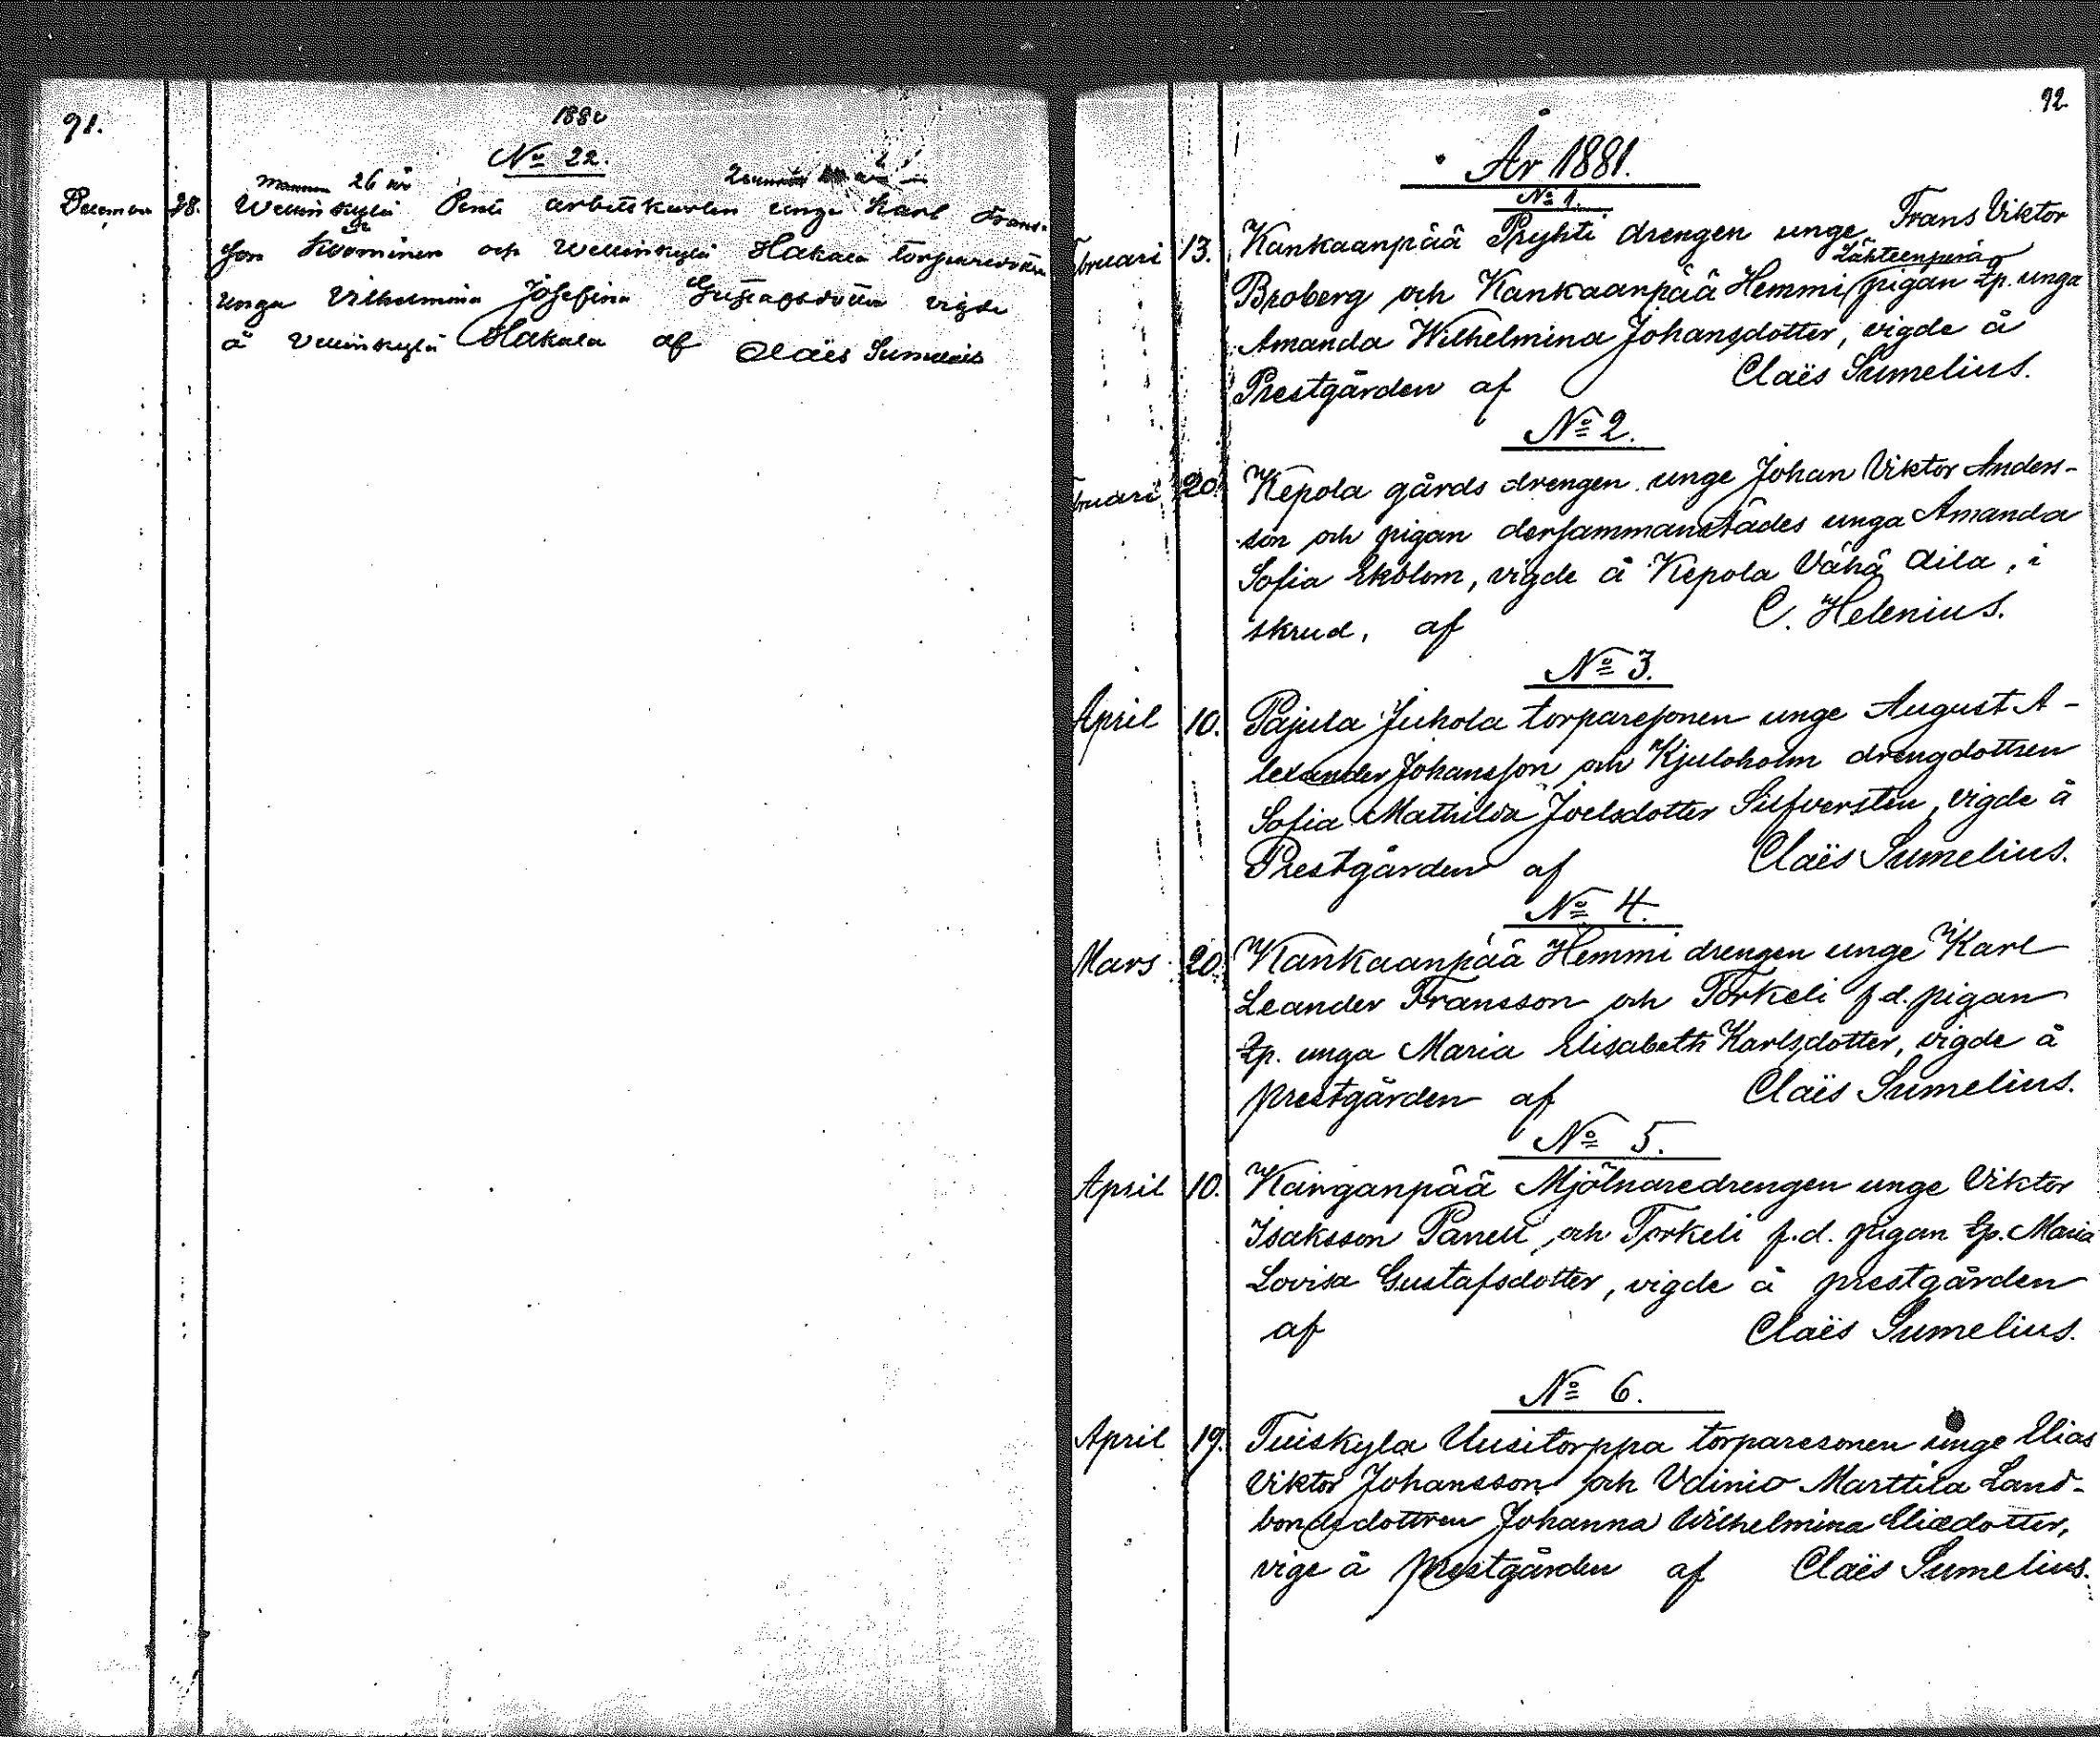 91.
1880
No 22.
mannen 26 år
December 28. Wellinkylä Penti arbetskarlen unge Karl Frans-
son Koominen och Wellinkylä Hakala torparedottren
unga Vilhelmina Josefina Gustafsdotter vigde
å Vellinkylä Hakala af Claës Sumelius
92
År 1881.
No 1.
Februari 13. Kankaanpää Pryhti drengen unge Frans Viktor
Lähteenperä
Broberg och Kankaanpää Hemmi pigan qp. unga
Amanda Wilhelmina Johansdotter, vigde å
Prestgården af Claës Sumelius.
No 2.
bruari 20. Kepola gårds drengen unge Johan Viktor Anders-
son och pigan dersammanstädes unga Amanda
Sofia Ekblom, vigde å Kepola Vähä Aila, i
skrud, af C. Helenius.
No 3.
April 10. Pajula Juhola torparesonen unge August A-
lexander Johansson och Kjuloholm drengdottren
Sofia Mathilda Joelsdotter Silfversten, vigde å
Prestgården af Claës Sumelius.
No 4.
Mars 20. Kankaanpää Hemmi drengen unge Karl
Leander Fransson och Torkeli f.d. pigan
qp. unga Maria Elisabeth Karlsdotter, vigde å
prestgården af Claës Sumelius.
No 5.
April 10. Kanganpää Mjölnaredrengen unge Viktor
Isaksson Panell och Torkeli f.d. pigan qp. Maria
Lovisa Gustafsdotter, vigde å prestgården
af Claës Sumelius.
No 6.
April 19. Tuiskyla Uusitorppa torparesonen unge Elias
Viktor Johansson och Vdinio Marttila Land-
bondsdottren Johanna Wilhelmina Eliedotter,
vige å prestgården af Claës Sumelius.